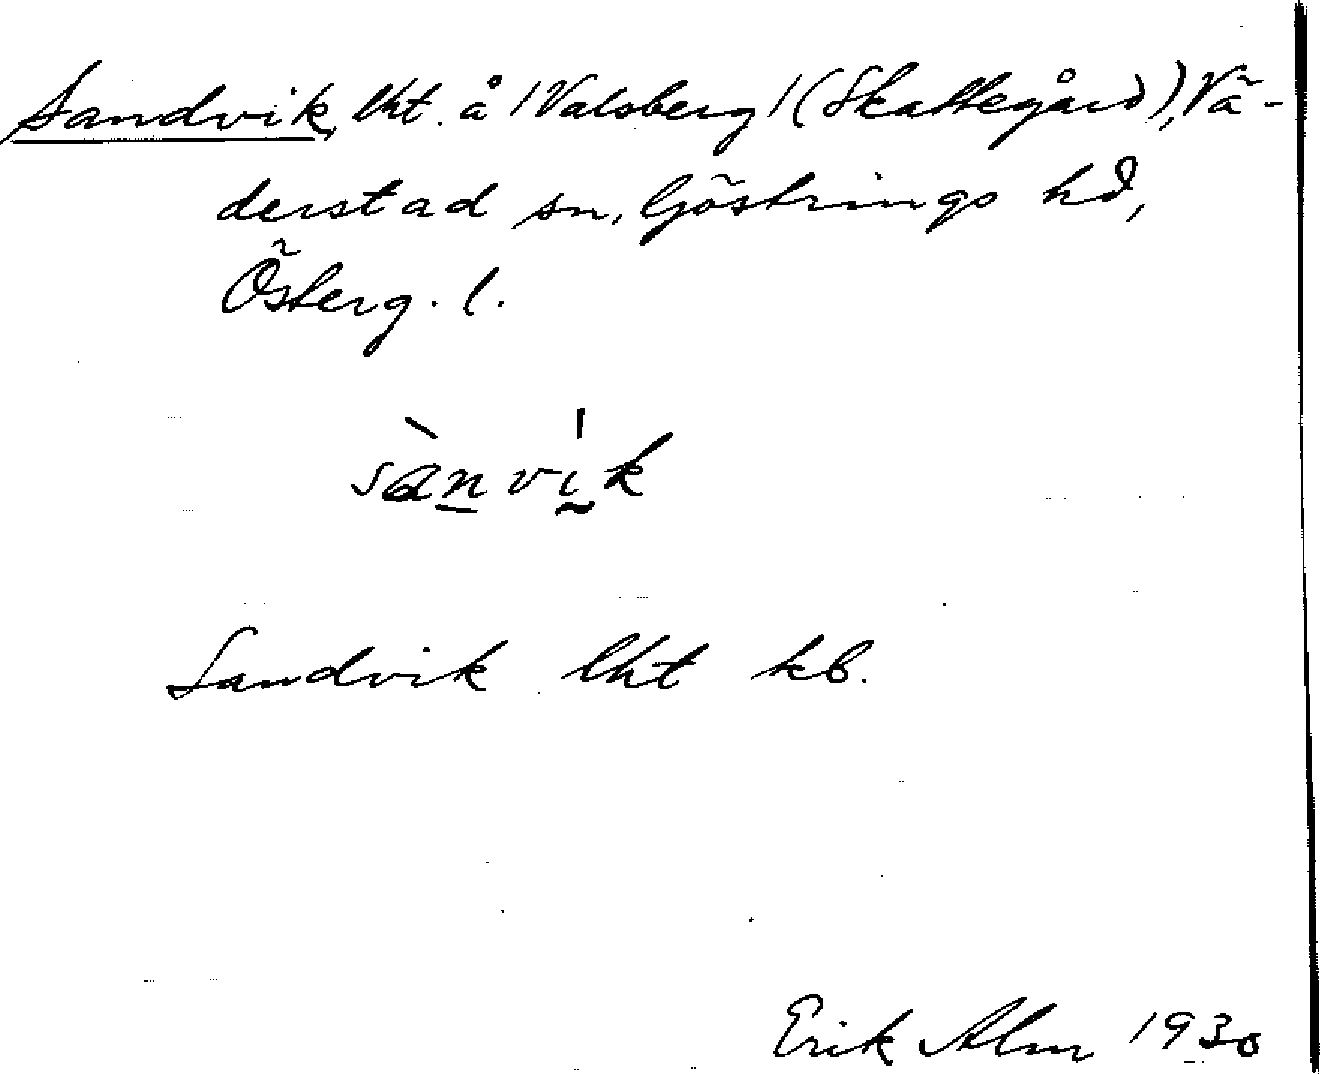 Sandvik, lht. å /Valsberg/ (Skattegård), Vä-
derstad sn, Göstrings hd,
Österg. l.
sànvi̍k
Sandvik lht kb.
Erik Alm 1930